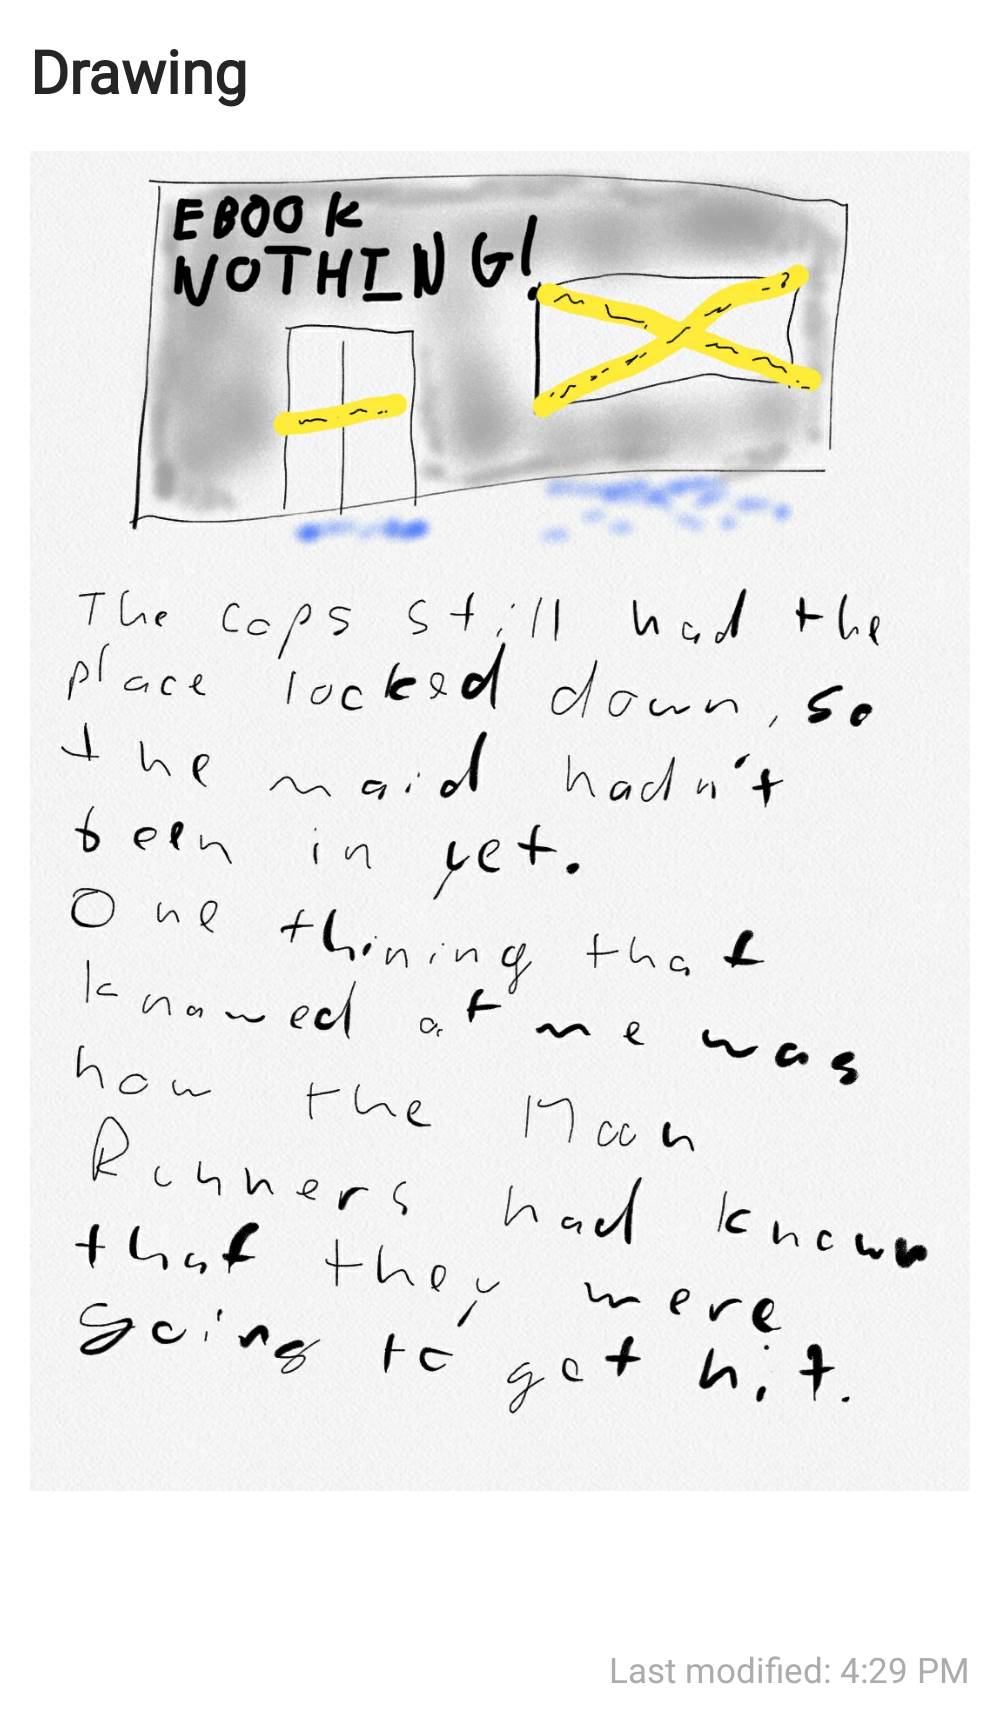 Drawing
EBOOK
NOTHING!
The cops still had the
place locked down, so
the maid hadn't
been in yet.
One thining that
knawed at me was
how the Moon
Runners had known
that they were
going to get hit.
Last modified: 4:29 PM